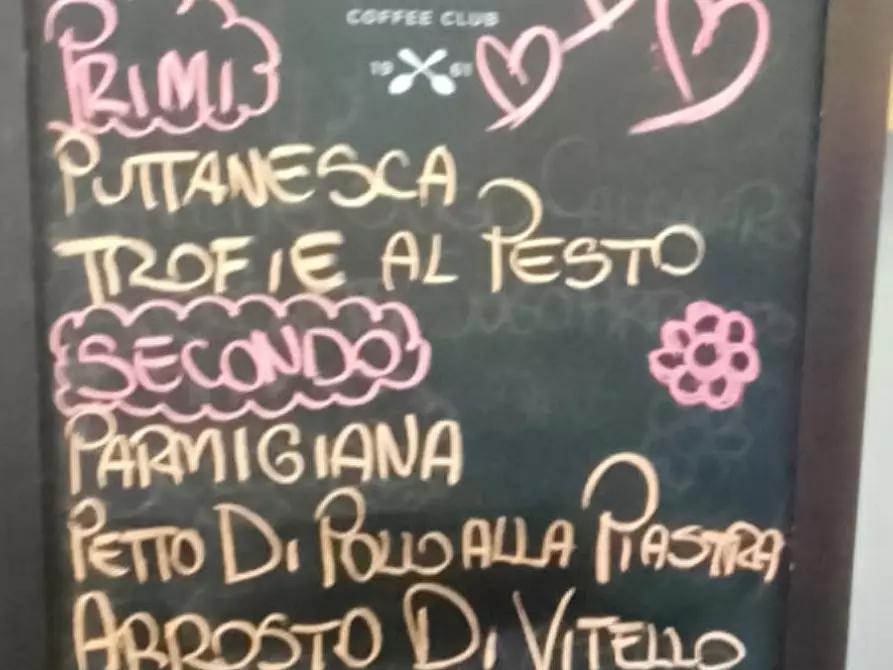 COFFEE CLUB
PRIMI
19 61
PUTTANESCA
TROFIE AL PESTO
SECONDO
PARMIGIANA
PETTO DI POLLO ALLA PIASTRA
ARROSTO DI VITELLO